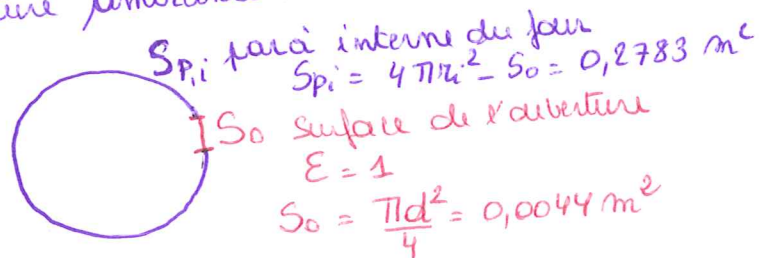 une
Sp,i paroi interne du four
Spi = 4πri² - So = 0,2783 m²
So surface de l'ouverture
ε = 1
So = πd²/4 = 0,0044 m²